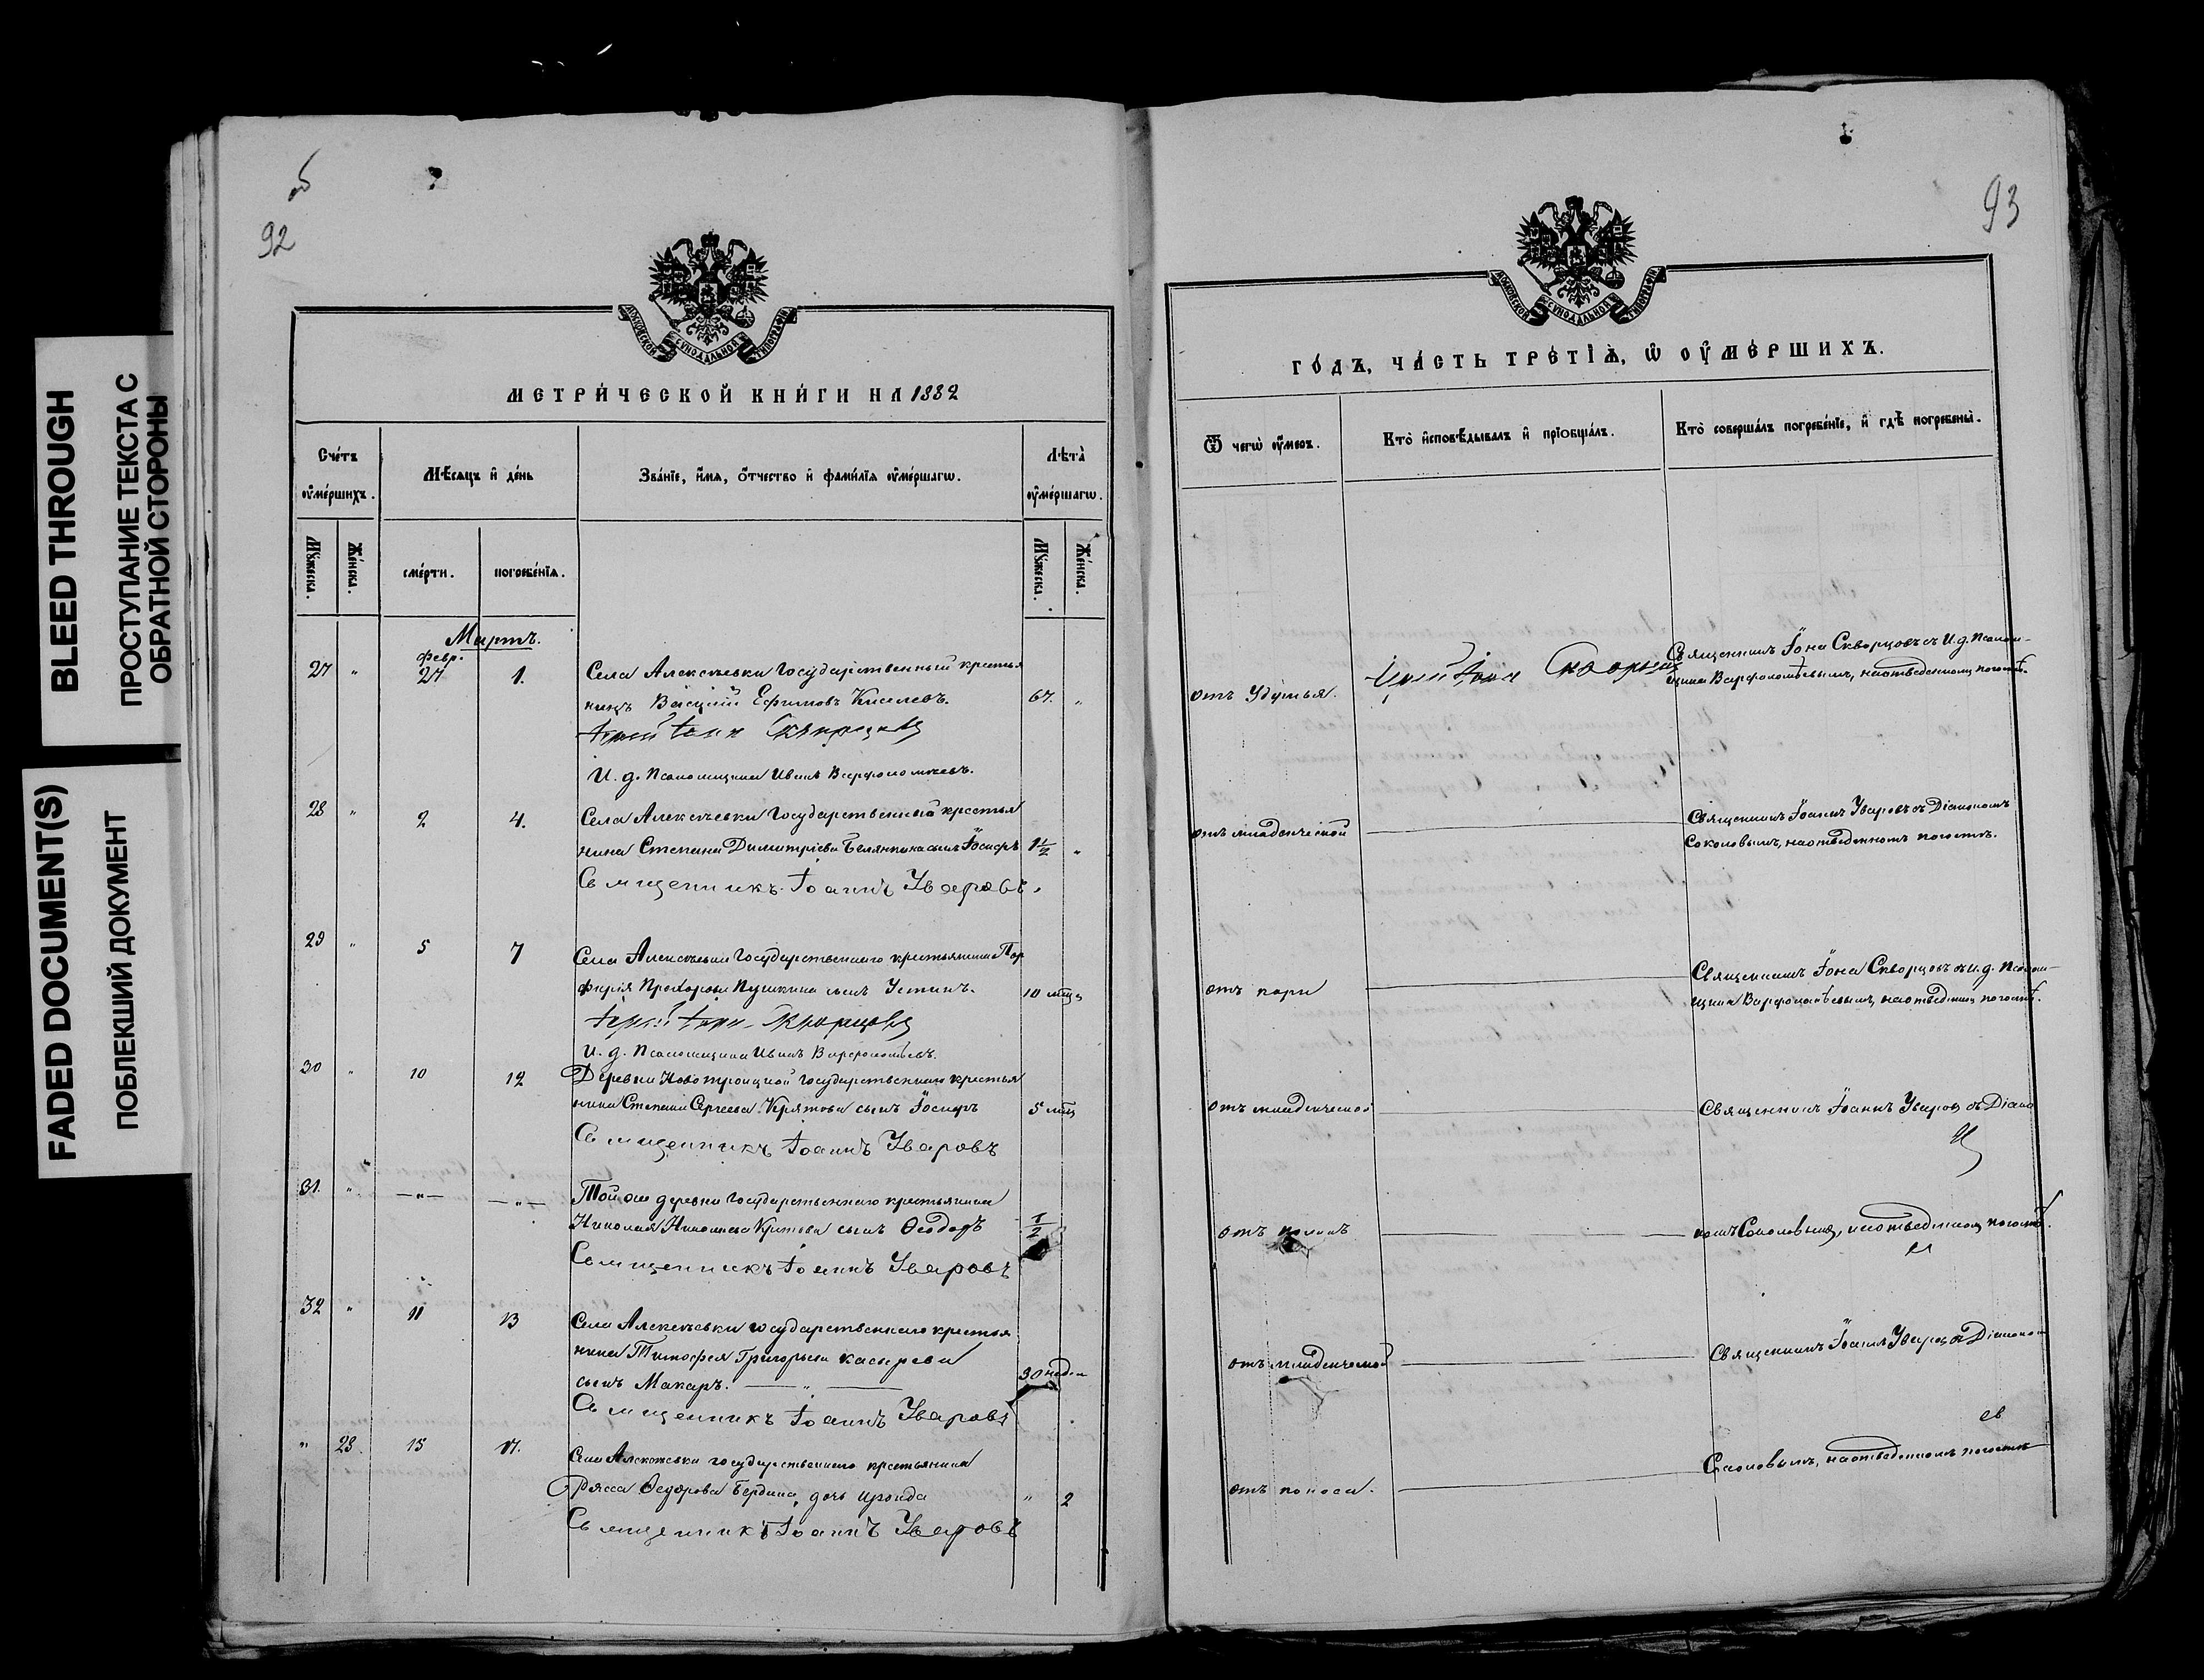 BLEED THROUGH
ПРОСТУПАНИЕ ТЕКСТА С
ОБРАТНОЙ СТОРОНЫ
FADED DOCUMENT(S)
ПОБЛЕКШИЙ ДОКУМЕНТ
об
92
МОСКОВСКОЙ СѴНОДАЛЬНОЙ ТИПОГРАФІИ
МЕТРИ́ЧЕСКОЙ КНИ́ГИ НА 1882
Сче́тъ
ᲂу҆ме́ршихъ.
Мѣ́сяцъ и҆ де́нь
Зва́нїе, и҆́мѧ, ѻ҆́тчество и҆ фами́лїѧ ᲂу҆ме́ршагѡ.
Лѣта̀
ᲂу҆ме́ршагѡ.
Мꙋ́жеска.
Же́нска.
сме́рти.
погребе́нїѧ.
Мꙋ́жеска.
Же́нска.
Мартъ.
февр.
27 " 27 1. Села Алексѣевки Государственный крестья
нинъ Ефимовъ Киселевъ. 67. "
Іерей Іона Скворцовъ
И. д. Псаломщика Иванъ Варфоломѣевъ.
28 " 2 4. Села Алексѣевки Государственнаго крестья
нина Степана Димитріева Белянкина сынъ Іосифъ 1 1/2 "
Священникъ Іоаннъ Уваровъ.
29 " 5 7 Села Алексѣевки Государственнаго крестьянина Пор
фирія Прохорова Пушкина сынъ Устинъ. 10 мѣц
Іерей Іона Скворцовъ
И. д. Псаломщика Иванъ Варфоломѣевъ.
30 " 10 12 Деревни Новотроицкой Государственнаго крестья
нина Степана Сергеева сынъ Іосифъ 5 мѣц
Священникъ Іоаннъ Уваровъ
31. " — " — — " — Той же деревни Государственнаго крестьянина
Николая сынъ Ѳеодоръ 1/2
Священникъ Іоаннъ Уваровъ
32 " 11 13 Села Алексѣевки государственнаго крестья
нина Тимофея Григорьева
сынъ Макаръ. — " — 30 недел
Священникъ Іоаннъ Уваровъ
" 28. 15 17. Села Алексѣевки государственнаго крестьянина
Ѳедорова Бердина, дочь Ироида " 2
Священникъ Іоаннъ Уваровъ
93
МОСКОВСКОЙ СѴНОДАЛЬНОЙ ТИПОГРАФІИ
ГО́ДЪ, ЧА́СТЬ ТРЕ́ТЇѦ, Ѡ҆ ОУ҆МЕ́РШИХЪ.
Ѿ чегѡ̀ ᲂу҆́меръ.
Кто̀ и҆сповѣ́дывалъ и҆ прїобща́лъ.
Кто̀ соверша́лъ погребе́нїе, и҆ гдѣ̀ погребены̀.
отъ удушья. Іерей Іона Скворцовъ Священникъ Іона Скворцовъ съ И. д. Псалом-
щика Варфоломѣевымъ, на отведенномъ погостѣ.
отъ младенческой Священникъ Іоаннъ Уваровъ съ Діакономъ
Соколовымъ, на отведенномъ погостѣ.
отъ кори Священникъ Іона Скворцовъ съ и. д. Псалом-
щика Варфоломѣевымъ, на отведенномъ погостѣ.
отъ младенческой Священникъ Іоаннъ Уваровъ съ Діако
отъ номъ Соколовымъ, на отведенномъ погостѣ.
отъ младенческой Священникъ Іоаннъ Уваровъ съ Діакономъ
отъ поноса. Соколовымъ, на отведенномъ погостѣ